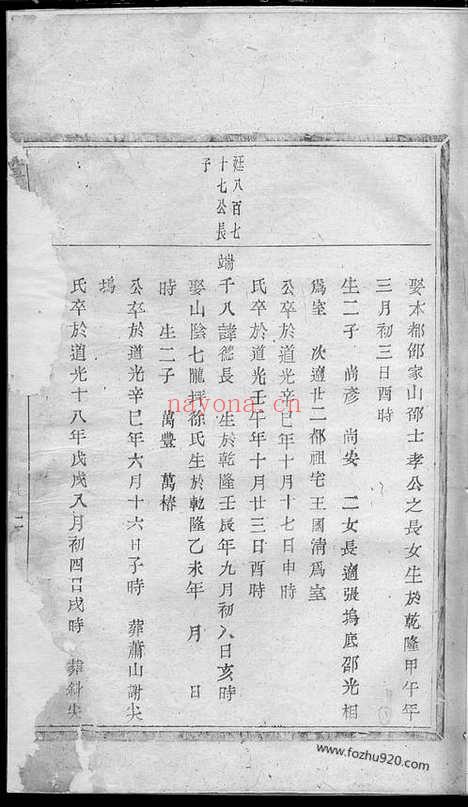 娶本都邵家山邵士孝公之長女生於乾隆甲午年
三月初三日酉時
生二子 尚彥 尚安 二女長適張塢底邵光相
為室 次適廿二都祖宅王國清為室
公卒於道光辛巳年十月十七日申時
氏卒於道光壬午年十月廿三日酉時
廷八百七
十七公長
子
端千八諱德長 生於乾隆壬辰年九月初八日亥時
娶山陰七隴徐氏生於乾隆乙未年 月 日
時 生二子 萬豐 萬椿
公卒於道光辛巳年六月十六日子時 葬蕭山謝尖
塢
氏卒於道光十八年戊戌八月初四日戌時 葬斜尖
nayona.cn
www.fozhu920.com